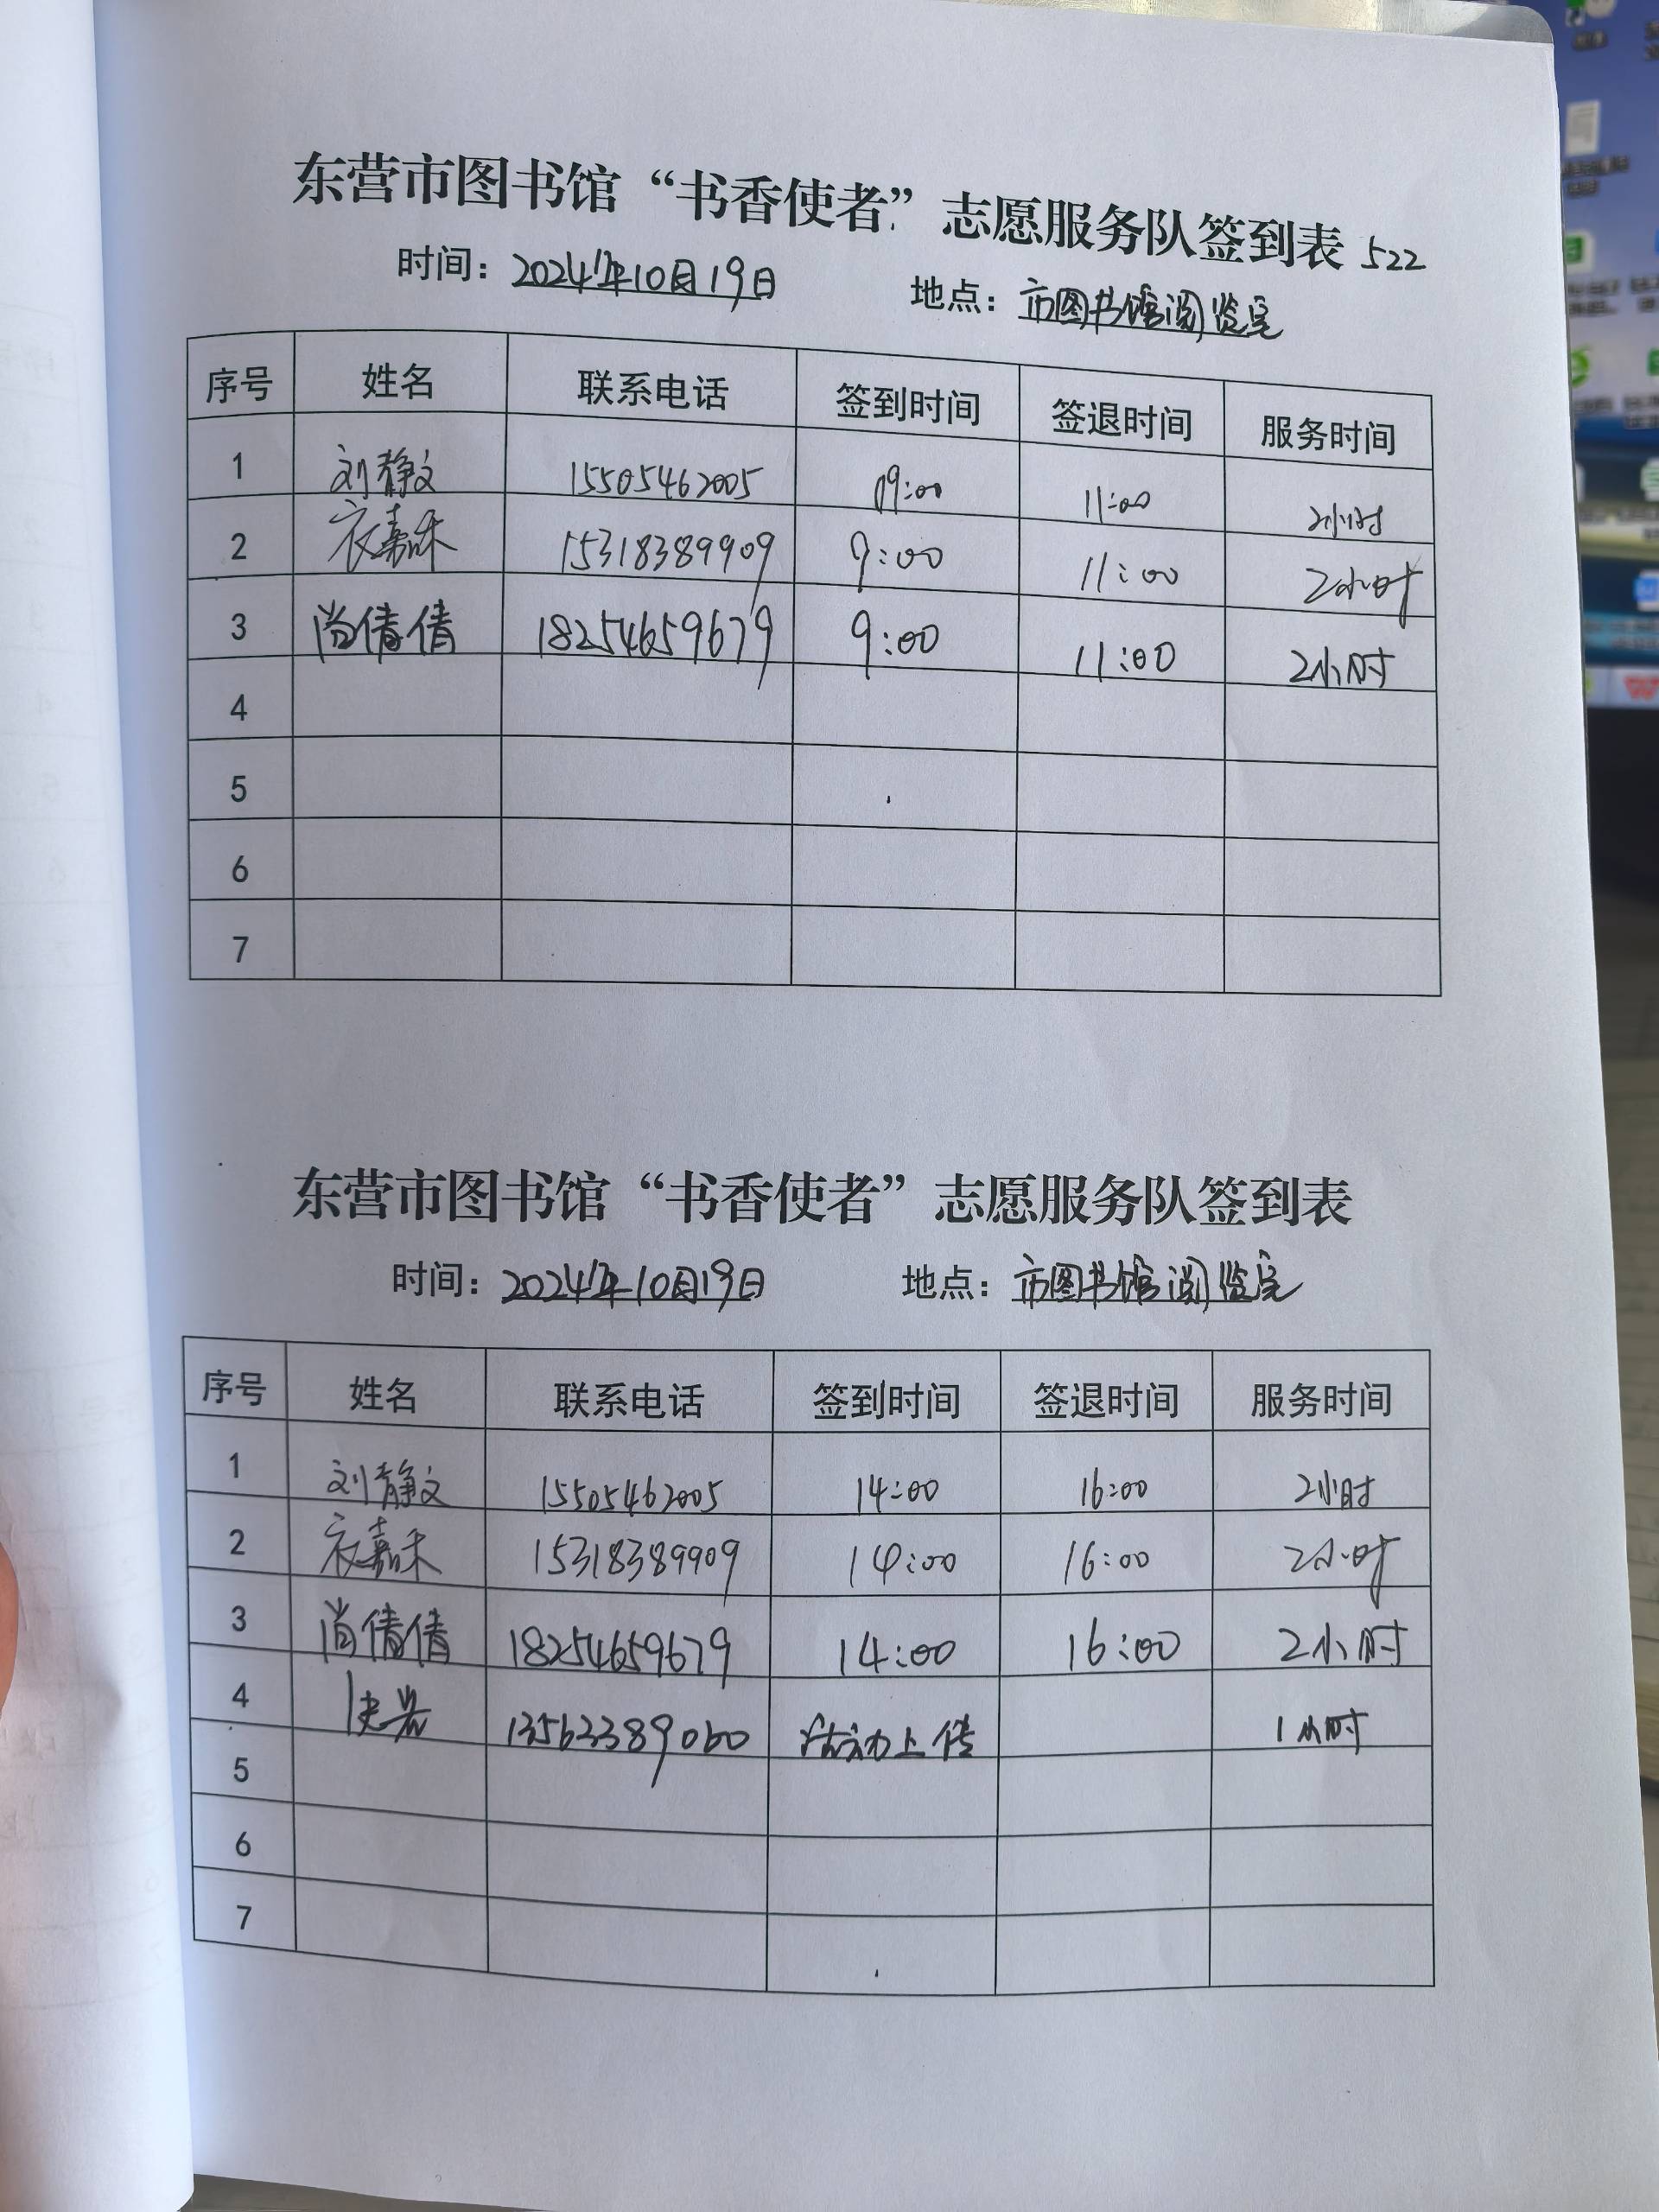 东营市图书馆“书香使者”志愿服务队签到表 522
时间：2024年10月19日 地点：市图书馆阅览室
序号 姓名 联系电话 签到时间 签退时间 服务时间
1 刘静文 15505462005 09:00 11:00 2小时
2 衣嘉禾 15318389909 9:00 11:00 2小时
3 尚倩倩 18254659679 9:00 11:00 2小时
4
5
6
7
东营市图书馆“书香使者”志愿服务队签到表
时间：2024年10月19日 地点：市图书馆阅览室
序号 姓名 联系电话 签到时间 签退时间 服务时间
1 刘静文 15505462005 14:00 16:00 2小时
2 衣嘉禾 15318389909 14:00 16:00 2小时
3 尚倩倩 18254659679 14:00 16:00 2小时
4 13563389060 活动上传 1小时
5
6
7